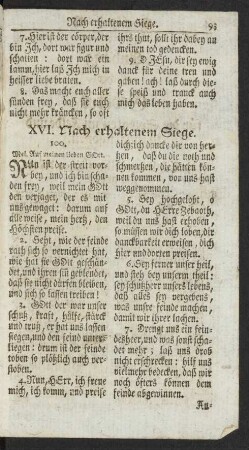 Nach erhaltenem Siege.
93
7. Hier ist der cörper, der
bin Jch, dort war figur und
schatten: dort war ein
lamm, hier laß Jch mich in
heisser liebe braten.
8. Das macht euch aller
sünden frey, daß sie euch
nicht mehr kräncken, so oft
ihrs thut, sollt ihr dabey an
meinen tod gedencken.
9. O JEsu, dir sey ewig
danck für deine treu und
gaben! ach! laß durch die-
se speiß und tranck auch
mich das leben haben.
XVI. Nach erhaltenem Siege.
100.
Mel. Auf meinen lieben GOtt.
NUn ist der streit vor-
bey, und ich bin scha-
den frey, weil mein GOtt
den verjaget, der es mit
uns gewaget: darum auf
alle weise, mein hertz, den
Höchsten preise.
2. Seht, wie der feinde
rath so vernichtet hat,
wie hat sie GOtt geschän-
det, und ihren sinn geblendet,
daß sie nicht dürfen bleiben,
und sich so lassen treiben!
3. GOtt der war unser
schutz, kraft, hülfe, stärck
und trutz, er hat uns lassen
siegen, und den feind unter-
liegen: drum ist der feinde
toben so plötzlich auch ver-
stoben.
4. Nun, HErr, ich freue
mich, ich komm, und preise
dich, ich dancke dir von her-
tzen, daß du die noth und
schmertzen, die hätten können
kommen, vor uns hast
weggenommen.
5. Sey hochgelobt, o
GOtt, du HErre Zebaoth,
daß du uns hast erhoben:
so müssen wir dich loben, dir
danckbarkeit erweisen, dich
hier und dorten preisen.
6. Sey ferner unser heil,
und steh bey unserm theil;
sey schutzherr unsers lebens,
daß alles sey vergebens,
was unsre feinde machen,
damit wir ihrer lachen.
7. Drengt uns ein fein-
desheer, und was sonst scha-
det mehr; laß uns drob
nicht erschrecken: hilf uns
vielmehr bedecken, daß wir
noch öfters können dem
feinde abgewinnen.